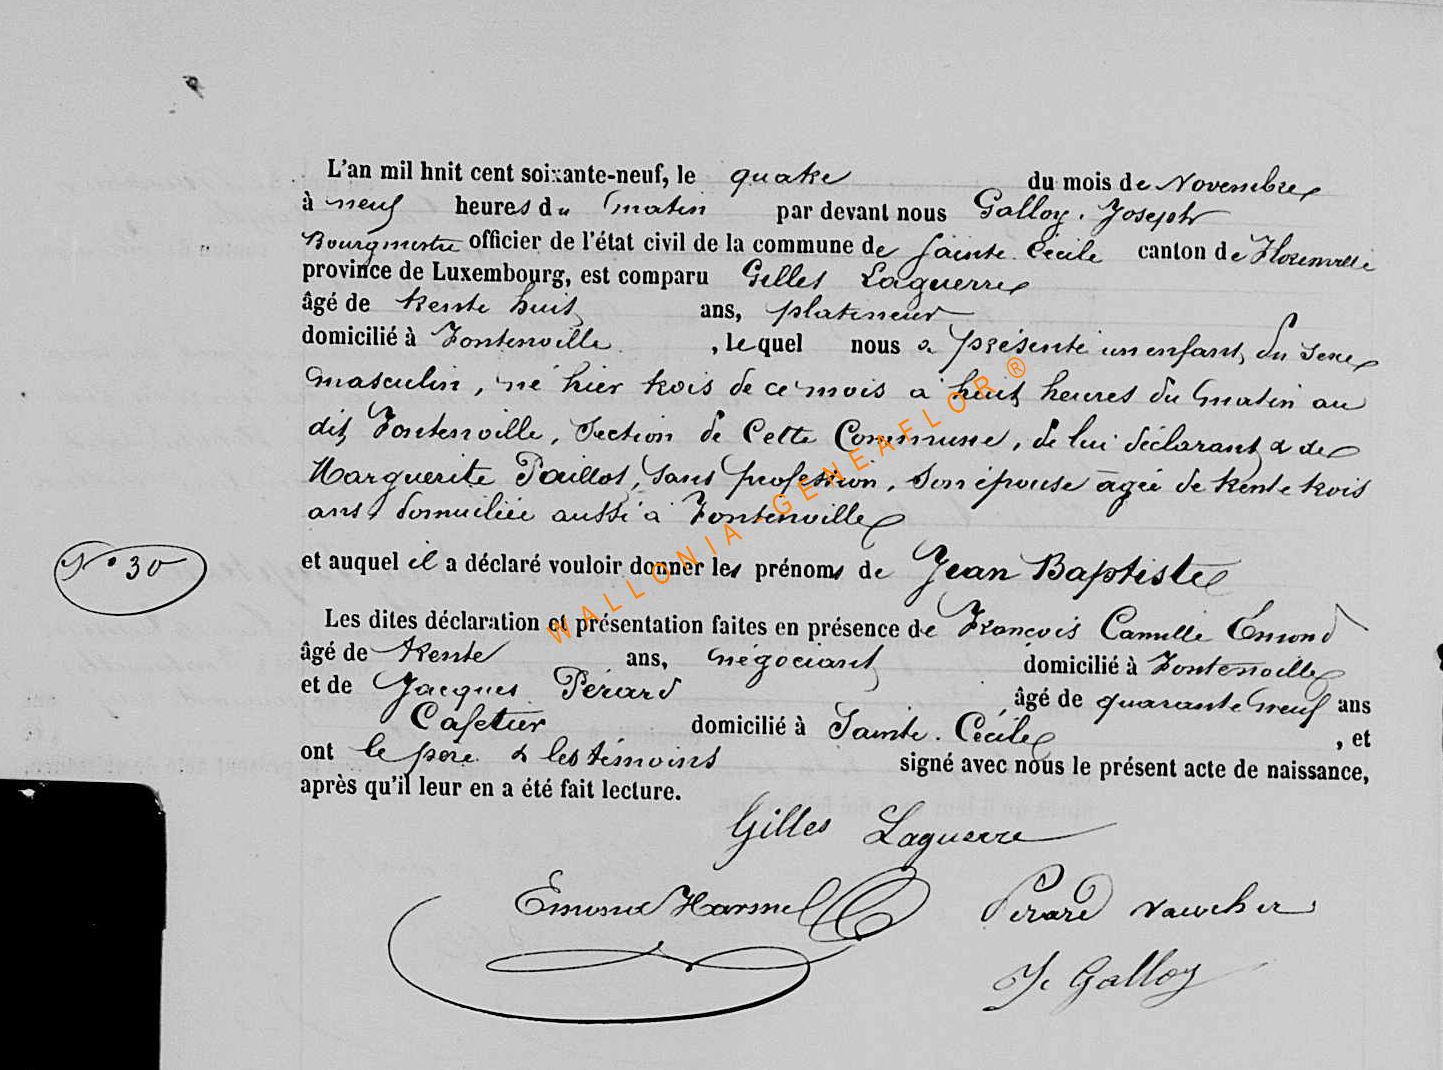 L'an mil hnit cent soixante-neuf, le quatre du mois de Novembre
à neuf heures du matin par devant nous Galloy, Joseph
Bourgmestre officier de l'état civil de la commune de Sainte Cécile canton de Florenville
province de Luxembourg, est comparu Gilles Laguerre
âgé de trente huit ans, platineur
domicilié à Fontenoille, lequel nous a présenté un enfant, du sexe
masculin, né hier trois de ce mois à huit heures du matin au
dit Fontenoille, Section de Cette Commune, de lui déclarant & de
Marguerite Paillot, sans profession, son épouse âgée de trente trois
ans, domiciliée aussi à Fontenoille
N° 30
et auquel il a déclaré vouloir donner les prénoms de Jean Baptiste
Les dites déclaration et présentation faites en présence de François Camille Emond
âgé de trente ans, négociant domicilié à Fontenoille
et de Jacques Pérard, âgé de quarante neuf ans
Cafetier domicilié à Sainte-Cécile, et
ont le père & les témoins signé avec nous le présent acte de naissance,
après qu'il leur en a été fait lecture.
Gilles Laguerre
Emond Harmel Perard vaucher
J. Galloy
WALLONIA-GENEAFLOR®